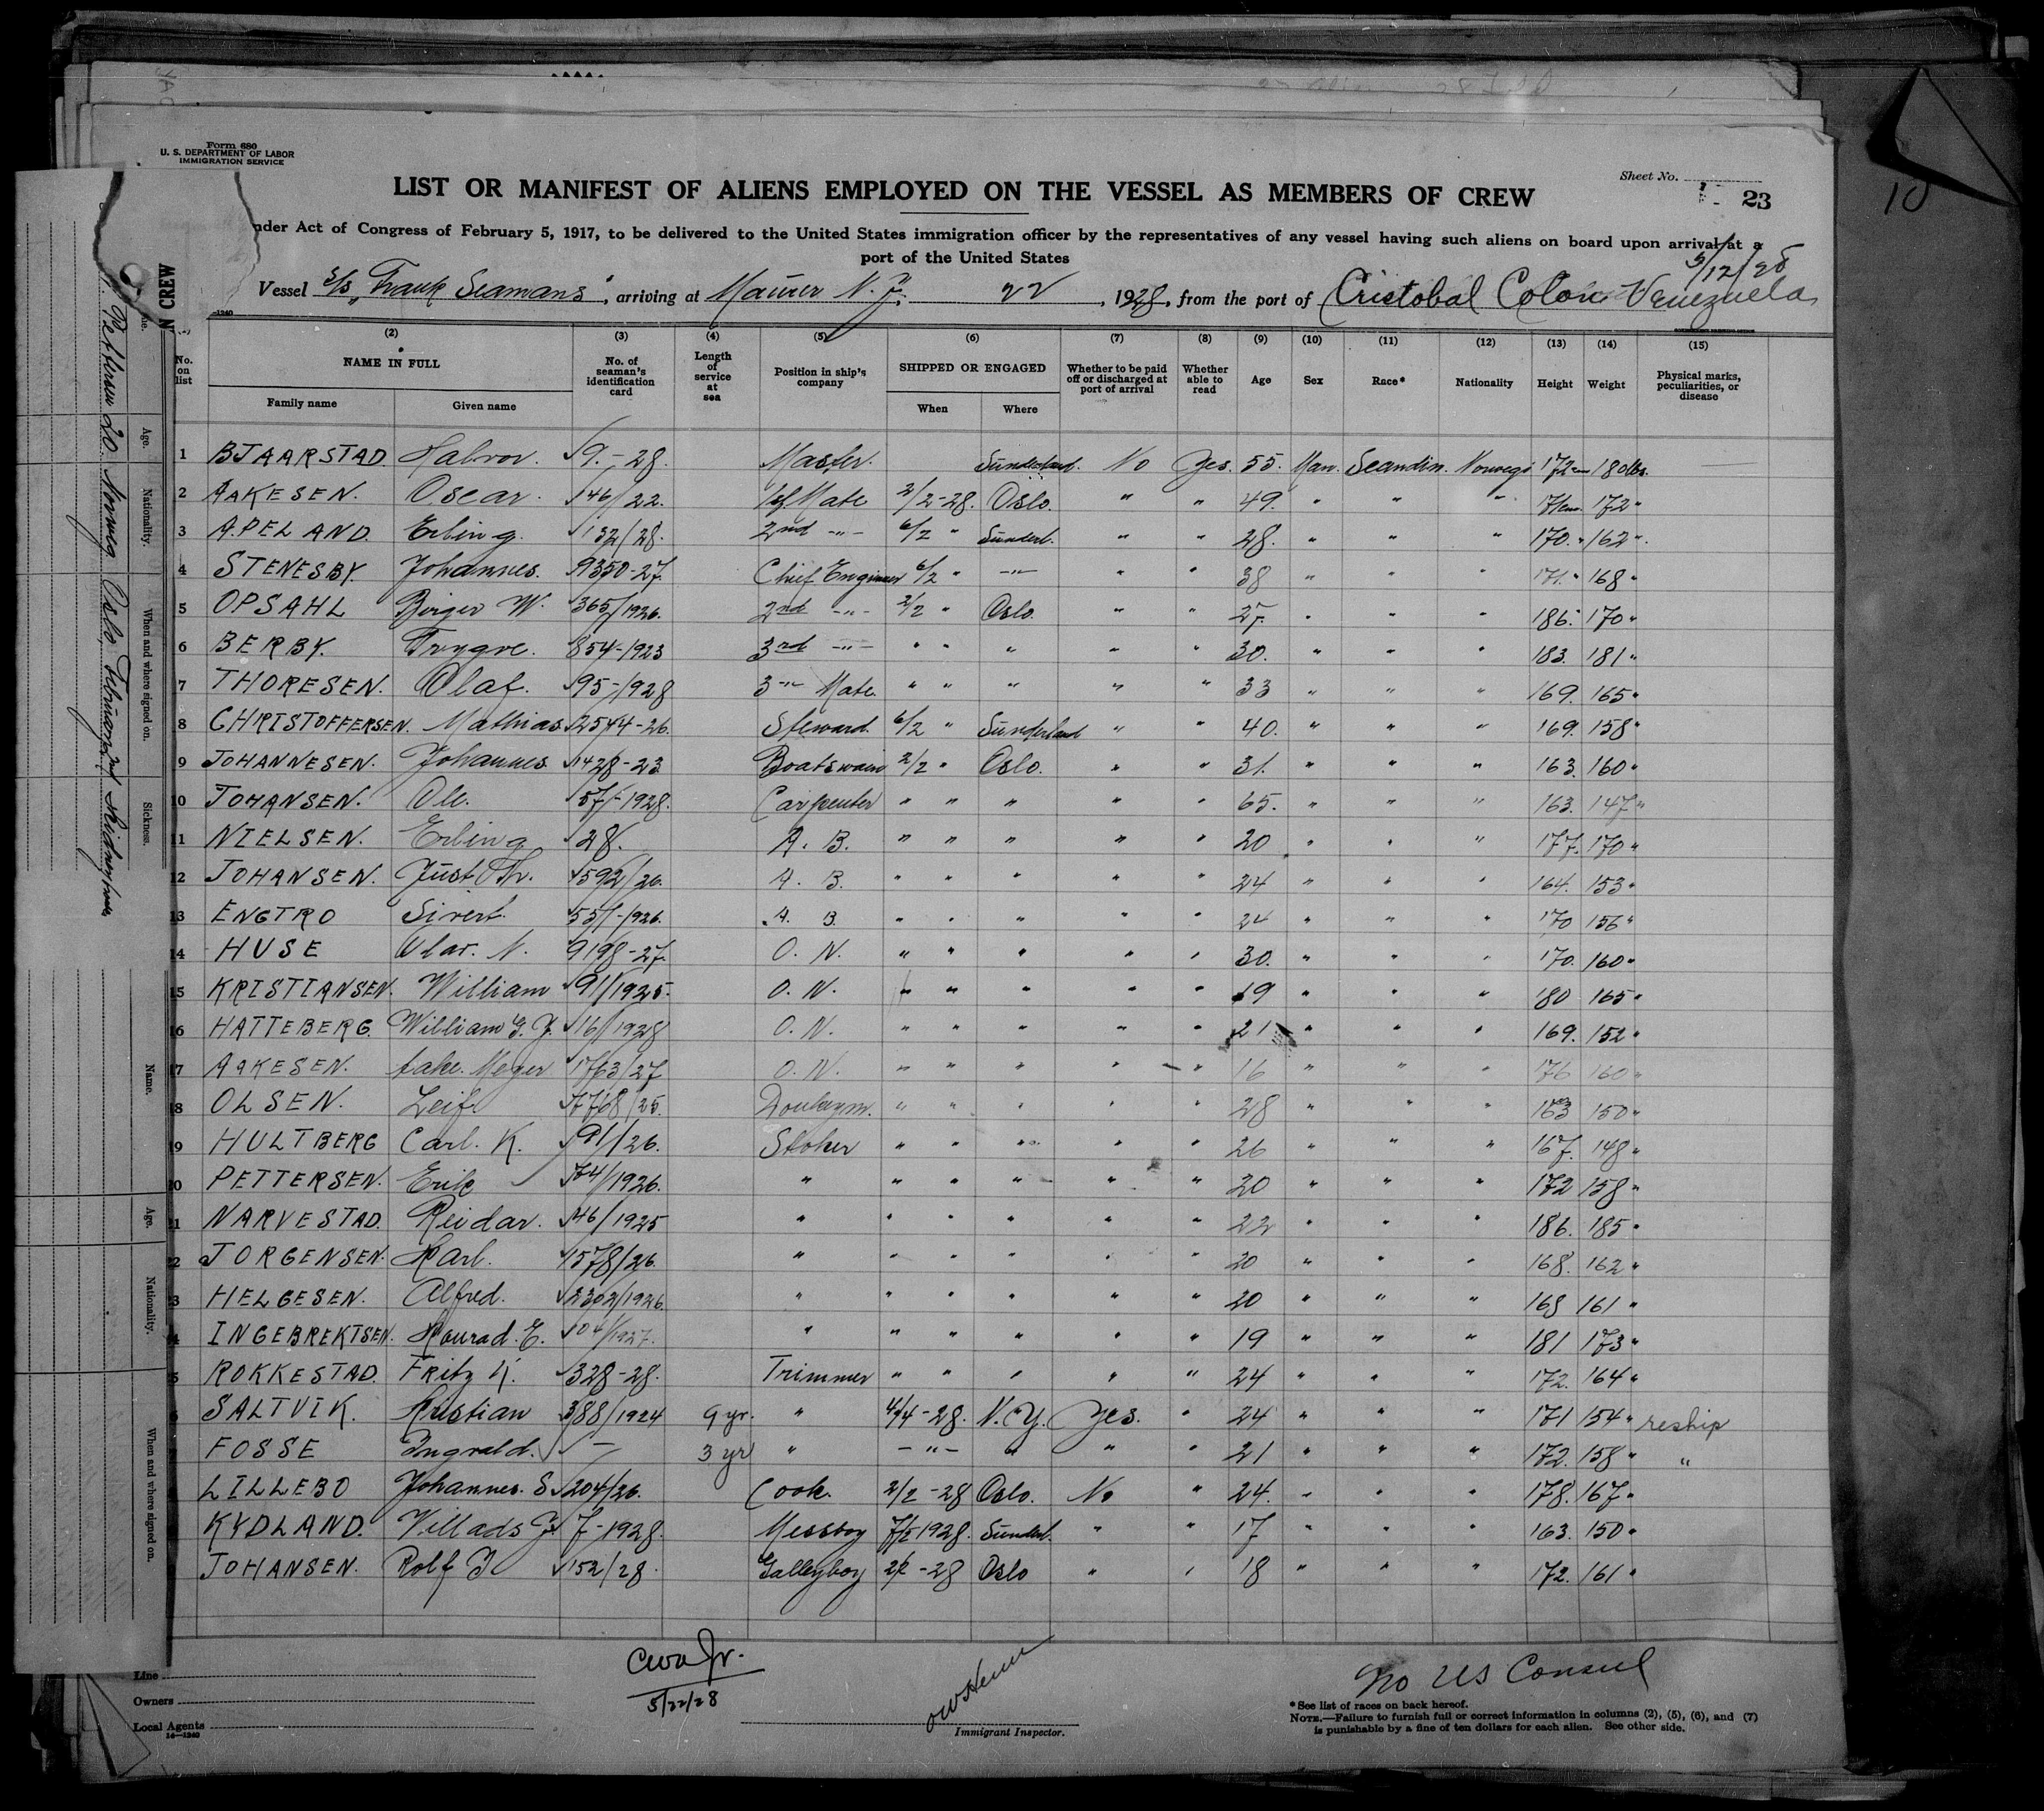 Form 680
U. S. DEPARTMENT OF LABOR
IMMIGRATION SERVICE
Sheet No.
23
10
LIST OR MANIFEST OF ALIENS EMPLOYED ON THE VESSEL AS MEMBERS OF CREW
nder Act of Congress of February 5, 1917, to be delivered to the United States immigration officer by the representatives of any vessel having such aliens on board upon arrival at a
port of the United States
5/12/28
Vessel S/S "Frank Seamans", arriving at Maurer N. J. 22, 1928, from the port of Cristobal Colon Venezuela
(2) (3) (4) (5) (6) (7) (8) (9) (10) (11) (12) (13) (14) (15)
No. on list NAME IN FULL Family name Given name No. of seaman's identification card Length of service at sea Position in ship's company SHIPPED OR ENGAGED When Where Whether to be paid off or discharged at port of arrival Whether able to read Age Sex Race* Nationality Height Weight Physical marks, peculiarities, or disease
1 BJAARSTAD. Halvor. 9.-28. Master. Sunderland. No Yes. 55. Man. Scandin. Norwegi 172 cm 180 lbs. —
2 AAKESEN. Oscar. 46/22. 1st Mate 2/2-28. Oslo. " " 49. " " " 171 cm. 172 "
3 APELAND. Erling. 132/28. 2nd -"- 6/2 " Sunderl. " " 28. " " " 170. " 162 "
4 STENESBY. Johannes. 9350-27. Chief Engineer 6/2 " -"- " " 38 " " " 171 " 168 "
5 OPSAHL Birger W. 365/1926. 2nd -"- 2/2 " Oslo. " " 27. " " " 186. 170 "
6 BERBY. Trygve. 854-1923 3rd -"- " " " " " 30. " " " 183. 181 "
7 THORESEN. Olaf. 95-1928 3 -"- Mate " " " " " 33 " " " 169. 165 "
8 CHRISTOFFERSEN. Mathias 2544-26. Steward. 6/2 " Sunderland " " 40. " " " 169. 158 "
9 JOHANNESEN. Johannes 1428-23 Boatswain 2/2 " Oslo. " " 31. " " " 163. 160 "
10 JOHANSEN. Ole. 57-1928. Carpenter " " " " " 65. " " " 163. 147 "
11 NIELSEN. Erling 28. A. B. " " " " " 20 " " " 177. 170 "
12 JOHANSEN. Just Th. 592/26. A. B. " " " " " 24 " " " 164. 153 "
13 ENGTRO Sivert. 551-1926. A. B. " " " " " 24 " " " 170 156 "
14 HUSE Olar. N. 9198-27. O. N. " " " " " 30. " " " 170. 160 "
15 KRISTIANSEN. William 91/1925. O. N. " " " " " 19 " " " 180 165 "
16 HATTEBERG. William G. J. 16/1928 O. N. " " " " " 21 " " " 169. 152 "
17 AAKESEN. Aake. Meyer 1763/27 O. N. " " " " " 16 " " " 176 160 "
18 OLSEN. Leif. 7768/25. Donkeym. " " " " " 28 " " " 163 150 "
19 HULTBERG Carl. K. 91/26. Stoker " " " " " 26 " " " 167. 148 "
20 PETTERSEN. Erik 704/1926. " " " " " " 20 " " " 172 158 "
21 NARVESTAD. Reidar. 46/1925 " " " " " " 22 " " " 186. 185 "
22 JORGENSEN. Karl. 1578/26. " " " " " " 20 " " " 168. 162 "
3 HELGESEN. Alfred. 2302/1926. " " " " " " 20 " " " 168 161 "
4 INGEBREKTSEN. Konrad. E. 104/1927. " " " " " " 19 " " " 181 173 "
5 ROKKESTAD. Fritz K. 328-28. Trimmer " " " " " 24 " " " 172. 164 "
6 SALTVIK. Kristian 388/1924 9 yr. " 4/4-28. N.Y. Yes. " 24 " " " 171 154 " reship
7 FOSSE Ingvald. — 3 yr " -"- " " " 21 " " " 172. 158 " "
LILLEBO Johannes. S. 204/26. Cook. 2/2-28 Oslo. No " 24. " " " 178. 167 "
KYDLAND. Villads J. 7-1928. Messboy 7/2 1928. Sunderl. " " 17 " " " 163. 150 "
JOHANSEN. Rolf I 152/28. Galleyboy 2/2-28 Oslo " " 18 " " " 172. 161 "
Line
Owners
Local Agents
14—1240
CWA Jr.
5/22/28
Immigrant Inspector.
No US Consul
*See list of races on back hereof.
NOTE.—Failure to furnish full or correct information in columns (2), (5), (6), and (7)
is punishable by a fine of ten dollars for each alien. See other side.
N CREW
Age.
Nationality.
When and where signed on.
Sickness.
Pettersen 20 Norweg Oslo, February 2nd
Name.
Age.
Nationality.
When and where signed on.